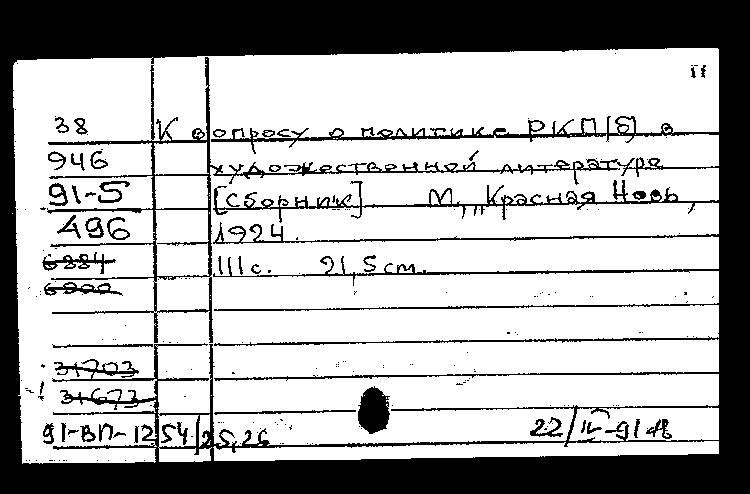 11
38 К вопросу о политике РКП(б) в
946 художественной литературе
91-5 [Сборник] М., „Красная Новь,
496 1924.
6884 111с. 21,5 cm.
31703
31673
91-ВП-1254/25,26 22/IV-91